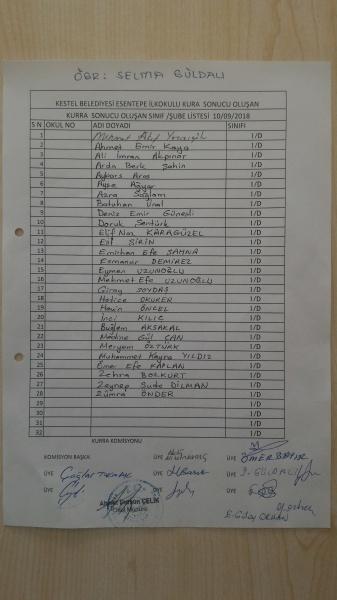 ÖĞR: SELMA GÜLDALI
KESTEL BELEDİYESİ ESENTEPE İLKOKULU KURA SONUCU OLUŞAN
KURRA SONUCU OLUŞAN SINIF /ŞUBE LİSTESİ 10/09/2018
S N OKUL NO ADI DOYADI SINIFI
1 Mehmet Akif 1/D
2 Ahmet Emir Kaya 1/D
3 Ali İmran Akpınar 1/D
4 Arda Berk Şahin 1/D
5 Aybars Aras 1/D
6 Ayşe 1/D
7 Azra Sağlam 1/D
8 Batuhan Ünal 1/D
9 Deniz Emir Güneşli 1/D
10 Doruk Şentürk 1/D
11 Elif Naz KARAGÜZEL 1/D
12 Elif ŞİRİN 1/D
13 Emirhan Efe 1/D
14 Esmanur DEMİREZ 1/D
15 Eymen UZUNOĞLU 1/D
16 Mehmet Efe UZUNOĞLU 1/D
17 Giray SOYDAŞ 1/D
18 Hatice OKURER 1/D
19 ÖNCEL 1/D
20 İnci KILIÇ 1/D
21 Buğlem AKSAKAL 1/D
22 Medine Gül CAN 1/D
23 Meryem ÖZTÜRK 1/D
24 Muhammet Kayra YILDIZ 1/D
25 Ömer Efe KAPLAN 1/D
26 Zehra BOZKURT 1/D
27 Zeynep Sude DİLMAN 1/D
28 Zümra ÖNDER 1/D
29 1/D
30 1/D
31 1/D
32 1/D
KURRA KOMİSYONU
KOMİSYON BAŞKA ÜYE ÜYE
ÜYE Çağlar ÜYE ÜYE S. GÜLDALI
ÜYE ÜYE ÜYE
Ahmet Dursun ÇELİK
Okul Müdürü